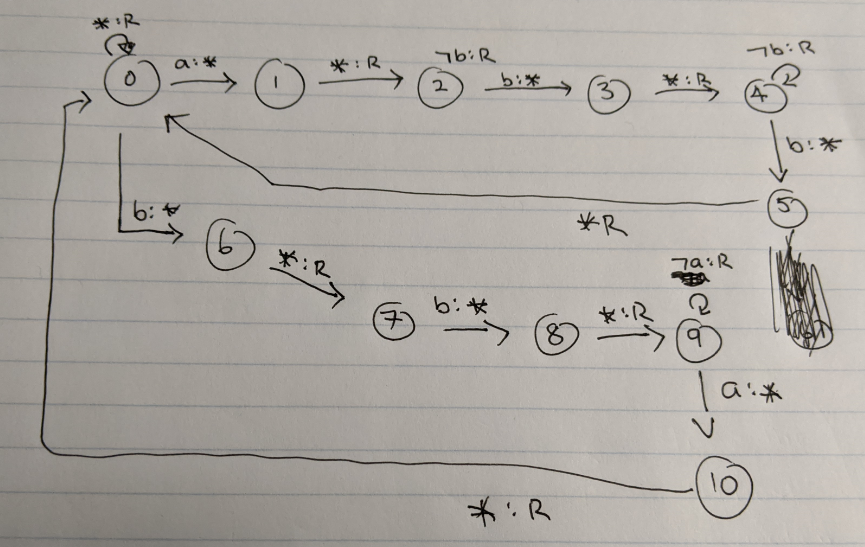 *:R
0 a:* 1 *:R 2 ¬b:R b:* 3 *:R 4 ¬b:R
b:*
5
*R
b:*
6
*:R
7 b:* 8 *:R 9 ¬a:R
a:*
10
*:R